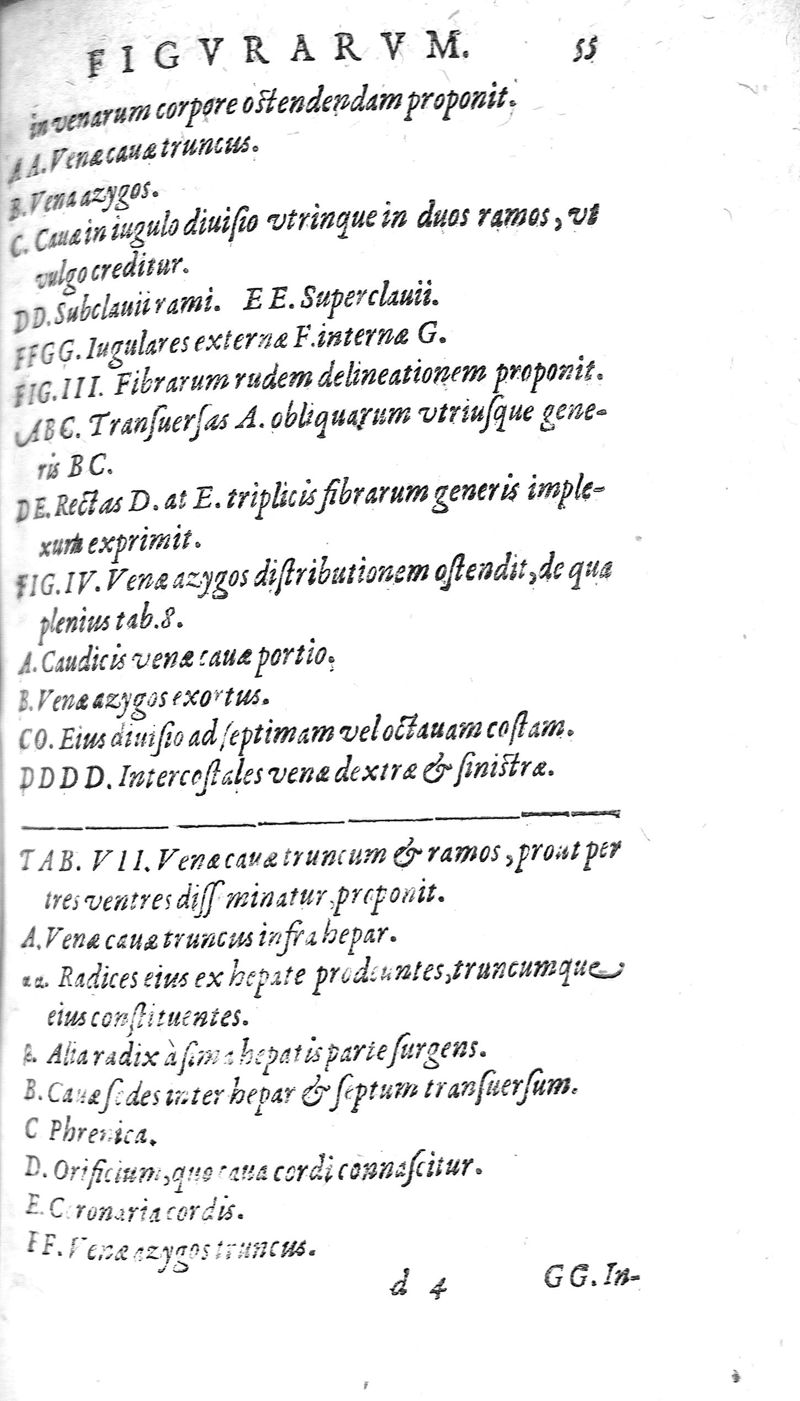 FIGVRARVM. 55
in venarum corpore ostendendam proponit.
A A. Venæ cauæ truncus.
B. Vena azygos.
C. Cauæ in iugulo diuisio vtrinque in duos ramos, vt
vulgo creditur.
DD. Subclauii rami. E E. Superclauii.
FFGG. Iugulares externæ F. internæ G.
FIG. III. Fibrarum rudem delineationem proponit.
ABC. Transuersas A. obliquarum vtriusque gene-
ris B C.
DE. Rectas D. at E. triplicis fibrarum generis imple-
xum exprimit.
FIG. IV. Venæ azygos distributionem ostendit, de qua
plenius tab. 8.
A. Caudicis venæ cauæ portio.
B. Venæ azygos exortus.
CO. Eius diuisio ad septimam vel octauam costam.
DDDD. Intercostales venæ dextræ & sinistræ.
TAB. VII. Venæ cauæ truncum & ramos, prout per
tres ventres diss minatur, proponit.
A. Venæ cauæ truncus infra hepar.
aa. Radices eius ex hepate prodeuntes, truncumque
eius constituentes.
Alia radix à sima hepatis parte surgens.
B. Cauæ sedes inter hepar & septum transuersum.
C Phrenica.
D. Orificium, quo caua cordi connascitur.
E. Coronaria cordis.
FF. Venæ azygos truncus.
d 4 GG. In-